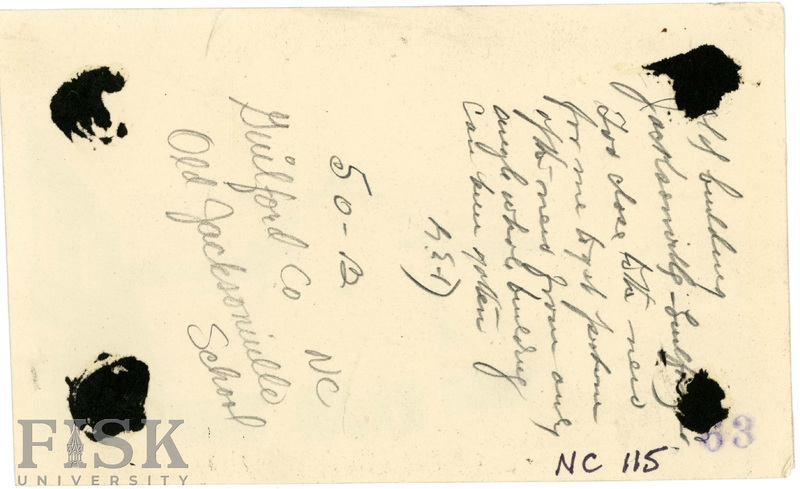 Old building
Jacksonville Guilford Co
Too close to the new
for me to get picture
of the new from only
angle whole building
can been gotten
50-B
Guilford Co NC
Old Jacksonville
School
63
NC 115
FISK
UNIVERSITY